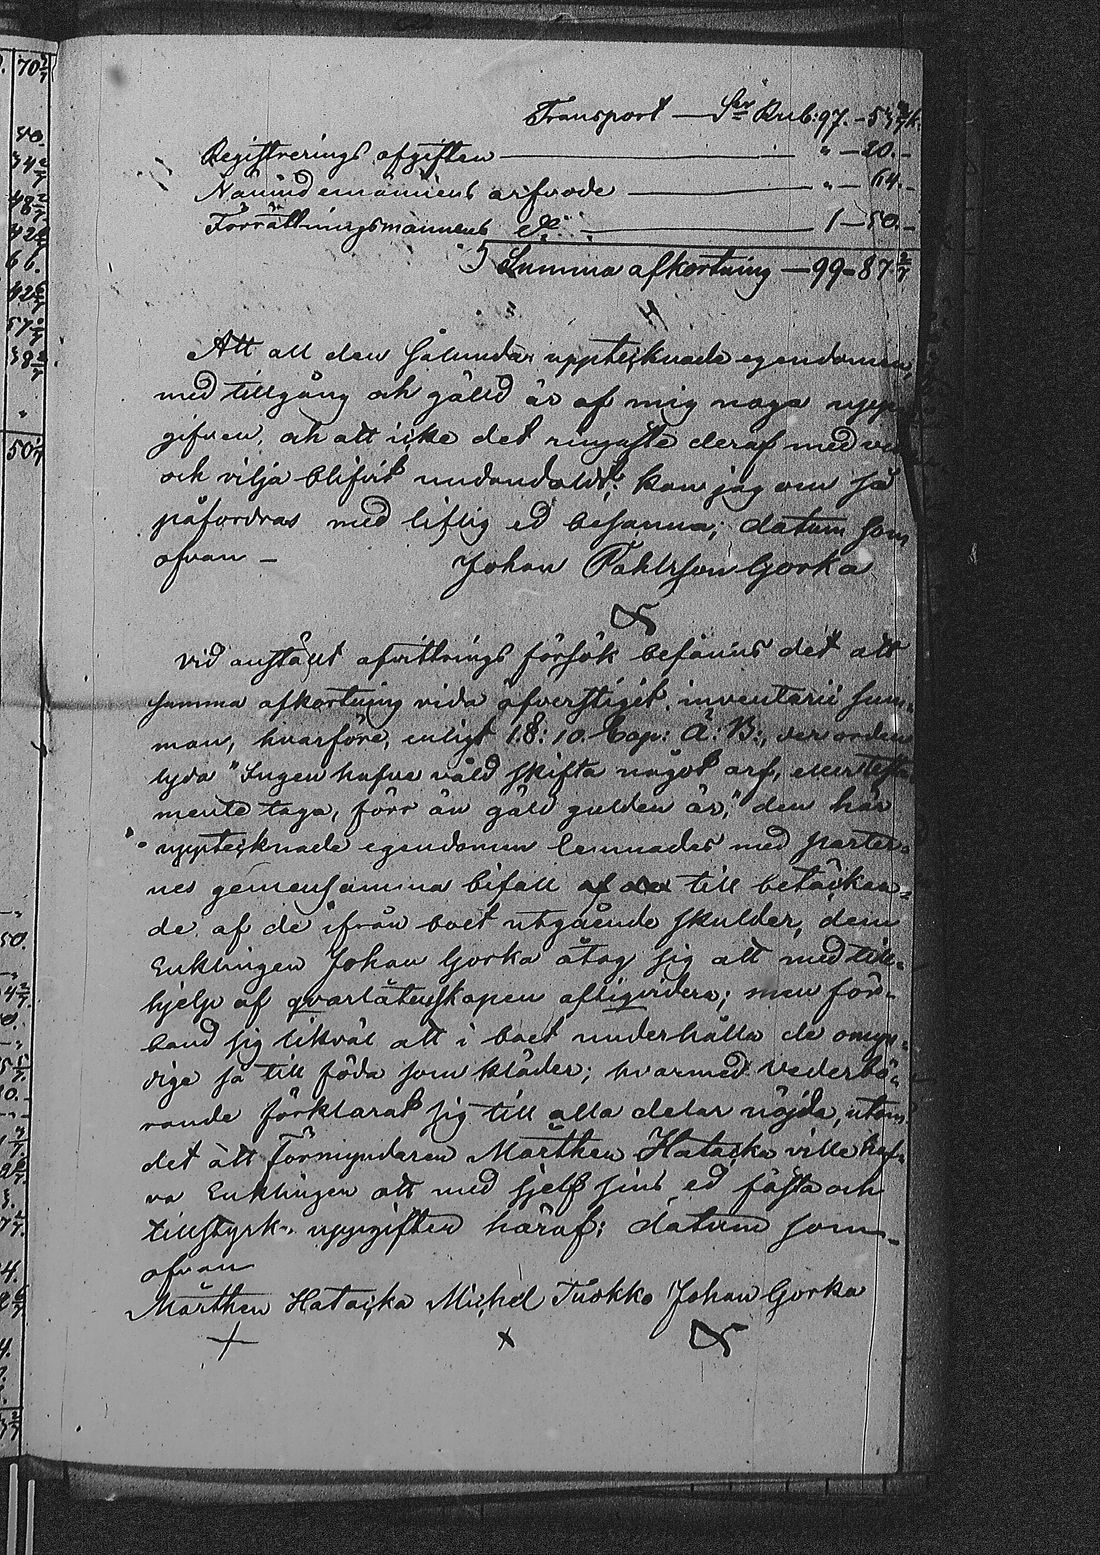 Transport — Sr Rub: 97. – 53 2/7 k.
Registrerings afgiften — " – 20. –
Nämndemännens arfvode — " – 64. –
Förrättningsmannens do — 1 – 50. –
Summa afkortning — 99 – 87 2/7
Att all den sålunda upptecknade egendomen,
med tillgång och gäld är af mig noga upp-
gifven, och att icke det ringaste deraf med ve
och vilja blifvit undandoldt; kan jag om så
påfordras med liflig ed besanna; datum som
ofvan – Johan Pahlsson Gorka
Vid anstäldt afvittrings försök befanns det att
samma afkortning vida öfverstiget inventarii sum-
man, hvarföre, enligt 1 §: 10. Cap: Ä: B:, der orden
lyda "Ingen hafve våld skifta något arf, eller testa
mente taga, förr än gäld gulden är," den här
upptecknade egendomen lemnades med parter-
nes gemensamma bifall till betäckan-
de af de ifrån boet utgående skulder, dem
Enklingen Johan Gorka åtog sig att med till-
hjelp af qvarlåtenskapen afliqvidera; men för-
band sig likväl att i boet underhålla de omyn-
dige så till föda som kläder; hvarmed Vederbö-
rande förklarat sig till alla delar nöjda, utom
det att Förmyndaren Mårthen Hatacka ville haf-
va Enklingen att med sjelf sins ed fästa och
tillstyrk uppgiften häraf; datum som
ofvan
Mårthen Hatacka Michel Tuokko Johan Gorka